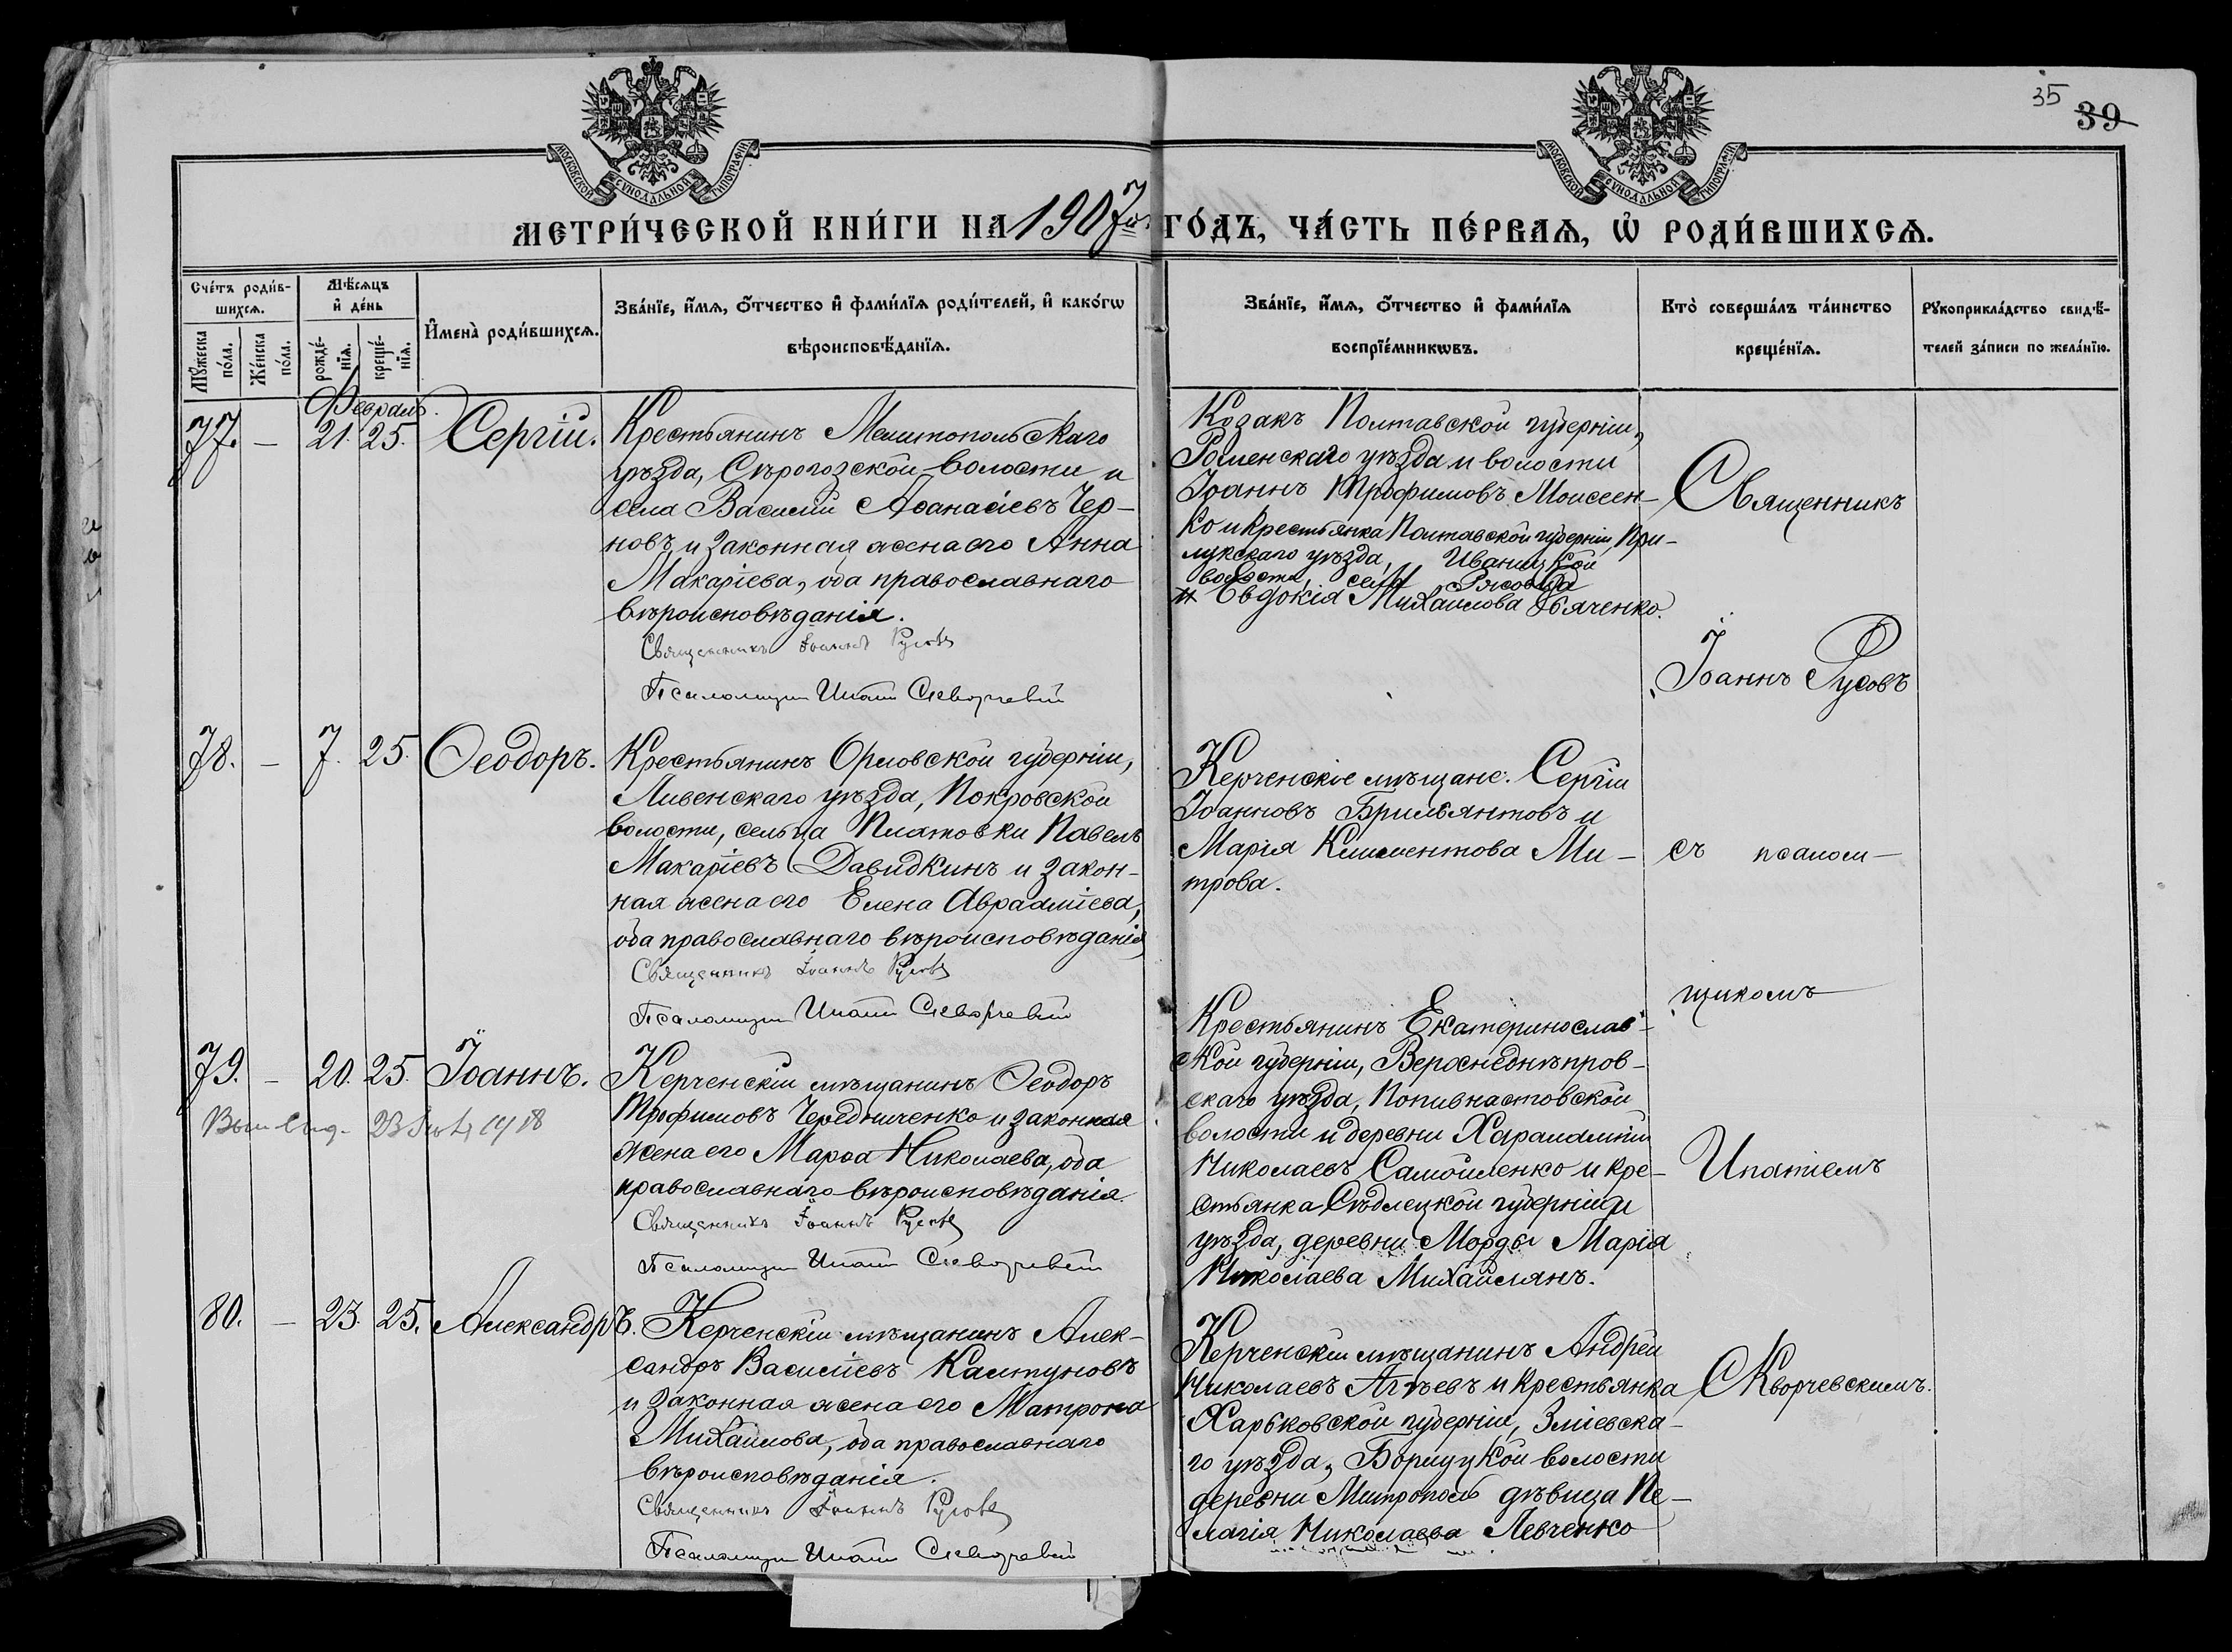 35
39
МОСКОВСКОЙ СѴНОДАЛЬНОЙ ТИПОГРАФІИ
МОСКОВСКОЙ СѴНОДАЛЬНОЙ ТИПОГРАФІИ
МЕТРИ́ЧЕСКОЙ КНИ́ГИ НА 1907й ГО́ДЪ, ЧА́СТЬ ПЕ́РВАѦ, Ѡ РОДИ́ВШИХСѦ.
Сче́тъ роди́в-
шихсѧ.
Мꙋ́жеска по́ла.
Же́нска по́ла.
Мѣ́сѧцъ
и҆ де́нь
рожде́-нїѧ.
креще́-нїѧ.
И҆мена̀ роди́вшихсѧ.
Зва́нїе, и҆́мѧ, ѻ҆́тчество и҆ фами́лїѧ роди́телей, и҆ како́гѡ
вѣроисповѣ́данїѧ.
Зва́нїе, и҆́мѧ, ѻ҆́тчество и҆ фами́лїѧ
воспрїе́мникѡвъ.
Кто̀ соверша́лъ та́инство
креще́нїѧ.
Рꙋкоприкла́дство свидѣ́-
телей за́писи по жела́нїю.
Февраль.
77. — 21. 25. Сергій.
Крестьянинъ Мелитопольскаго
уѣзда, Сѣрогозской волости и
села Василій Аѳанасіевъ Чер-
новъ и законная жена его Анна
Макаріева, оба православнаго
вѣроисповѣданія.
Священникъ Іоаннъ Русовъ
Псаломщик Ипатій Скворчевскій
Козакъ Полтавской губерніи,
Роменскаго уѣзда и волости
Іоаннъ Трофимовъ Моисеен-
ко и крестьянка Полтавской губерніи, При-
лукскаго уѣзда, Иваницкой
волости, села
Евдокія Михайлова Дьяченко.
Священникъ
Іоаннъ Русовъ
78. — 7. 25. Ѳеодоръ.
Крестьянинъ Орловской губерніи,
Ливенскаго уѣзда, Покровской
волости, сельца Платовки Павелъ
Макаріевъ Давидкинъ и закон-
ная жена его Елена Авраамиева,
оба православнаго вѣроисповѣданія
Священникъ Іоаннъ Русовъ
Псаломщик Ипатій Скворчевскій
Керченскіе мѣщане: Сергій
Іоанновъ Брильянтовъ и
Марія Климентова Ми-
трова.
съ псалом-
щикомъ
79. — 20. 25. Іоаннъ.
Керченскій мѣщанинъ Ѳеодоръ
Трофимовъ Чередниченко и законная
жена его Марѳа Николаева, оба
православнаго вѣроисповѣданія.
Священникъ Іоаннъ Русовъ
Псаломщик Ипатій Скворчевскій
Крестьянинъ Екатеринослав-
ской губерніи, Верхнеднѣпров-
скаго уѣзда, Попивнастовской
волости и деревни Харлампій
Николаевъ Самойленко и кре-
стьянка Сѣдлецкой губерніи и
уѣзда, деревни Морды Марія
Николаева Михайлянъ.
Ипатіемъ
80. — 23. 25. Александръ.
Керченскій мѣщанинъ Алек-
сандръ Василіевъ Калтуновъ
и законная жена его Матрона
Михайлова, оба православнаго
вѣроисповѣданія.
Священникъ Іоаннъ Русовъ
Псаломщик Ипатій Скворчевскій
Керченскій мѣщанинъ Андрей
Николаевъ Агѣевъ и крестьянка
Харьковской губерніи, Зміевска-
го уѣзда, волости
деревни Митрополь дѣвица Пе-
лагія Николаева Левченко
Скворчевскимъ.